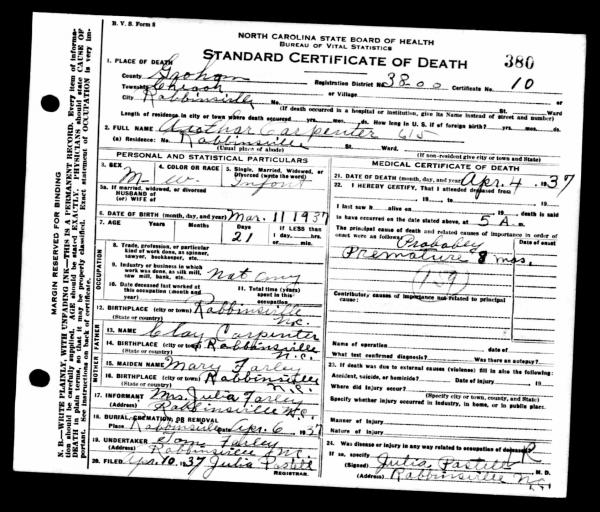 B. V. S. Form 8
NORTH CAROLINA STATE BOARD OF HEALTH
BUREAU OF VITAL STATISTICS
STANDARD CERTIFICATE OF DEATH
380
1. PLACE OF DEATH
County Graham Registration District No. 3800 Certificate No. 10
Township Cheoah or Village
City Robbinsville No. St. Ward
(If death occurred in a hospital or institution, give its Name instead of street and number)
Length of residence in city or town where death occurred yrs. mos. ds. How long in U. S. if of foreign birth? yrs. mos. ds.
2. FULL NAME Carpenter
(a) Residence: No. Robbinsville St. Ward.
(Usual place of abode) (If non-resident give city or town and State)
PERSONAL AND STATISTICAL PARTICULARS
3. SEX M- 4. COLOR OR RACE W. 5. Single, Married, Widowed, or Divorced (write the word) Infant
5a. If married, widowed, or divorced
HUSBAND of
(or) WIFE of
6. DATE OF BIRTH (month, day, and year) Mar. 11 1937
7. AGE Years Months Days 21 If LESS than 1 day, hrs. or min.
OCCUPATION
8. Trade, profession, or particular kind of work done, as spinner, sawyer, bookkeeper, etc.
9. Industry or business in which work was done, as silk mill, saw mill, bank, etc. Not any
10. Date deceased last worked at this occupation (month and year)
11. Total time (years) spent in this occupation
12. BIRTHPLACE (city or town) Robbinsville
(State or country) N.C.
FATHER
13. NAME Clay Carpenter
14. BIRTHPLACE (city or town) Robbinsville
(State or country) N.C.
MOTHER
15. MAIDEN NAME Mary Farley
16. BIRTHPLACE (city or town) Robbinsville
(State or country) N.C.
17. INFORMANT Mrs. Julia Farley
(Address) Robbinsville N.C.
18. BURIAL, CREMATION OR REMOVAL
Place Robbinsville Apr. 6 1937
19. UNDERTAKER Tom Farley
(Address) Robbinsville N.C.
20. FILED Apr. 10 1937 Julia Pastell
REGISTRAR.
MEDICAL CERTIFICATE OF DEATH
21. DATE OF DEATH (month, day, and year) Apr. 4 1937
22. I HEREBY CERTIFY, That I attended deceased from
19 , to 19
I last saw h alive on 19 , death is said
to have occurred on the date stated above, at 5 A m.
The principal cause of death and related causes of importance in order of
onset were as follows: Date of onset
Probabley
Premature 8 mos.
Contributory causes of importance not related to principal
cause:
Name of operation date of
What test confirmed diagnosis? Was there an autopsy?
23. If death was due to external causes (violence) fill in also the following:
Accident, suicide, or homicide? Date of injury 19
Where did injury occur?
(Specify city or town, county, and State)
Specify whether injury occurred in industry, in home, or in public place.
Manner of Injury
Nature of Injury
24. Was disease or injury in any way related to occupation of deceased?
If so, specify R
(Signed) Julia Pastell M. D.
(Address) Robbinsville N.C.
MARGIN RESERVED FOR BINDING
N. B.—WRITE PLAINLY, WITH UNFADING INK—THIS IS A PERMANENT RECORD. Every item of information should be carefully supplied. AGE should be stated EXACTLY. PHYSICIANS should state CAUSE OF DEATH in plain terms, so that it may be properly classified. Exact statement of OCCUPATION is very important. See instructions on back of certificate.